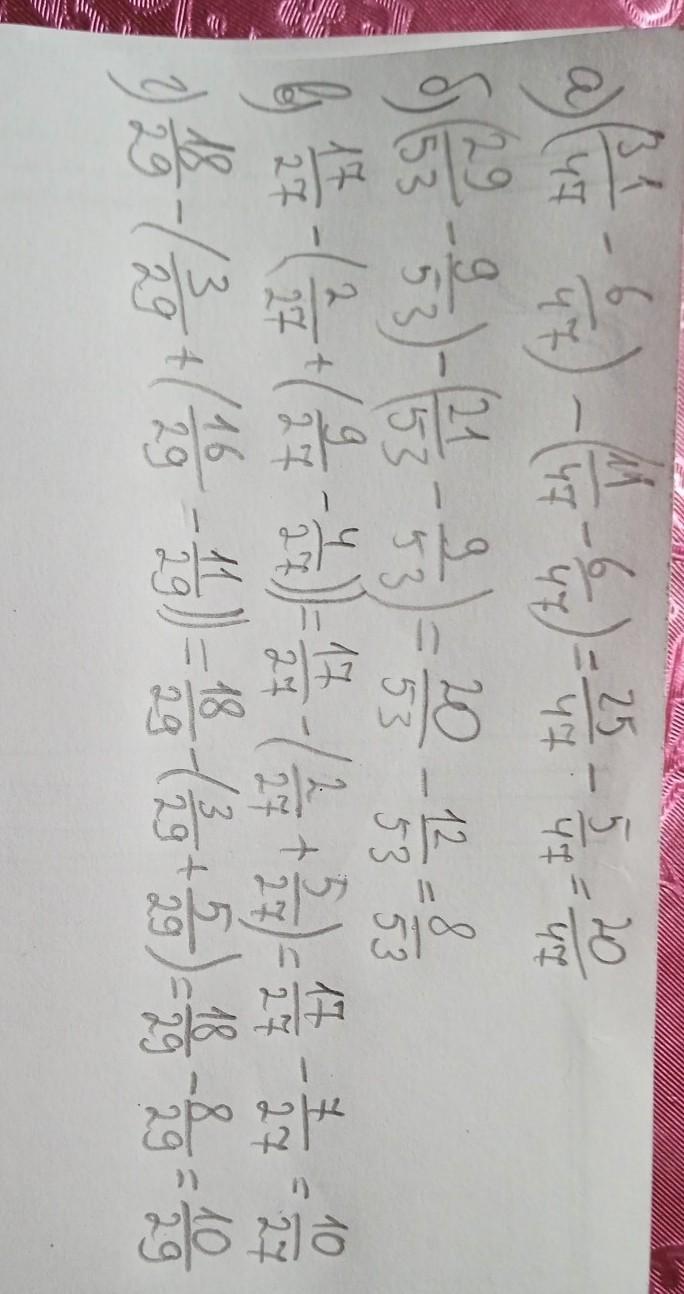 а) (31/47 - 6/47) - (11/47 - 6/47) = 25/47 - 5/47 = 20/47
б) (29/53 - 9/53) - (21/53 - 9/53) = 20/53 - 12/53 = 8/53
в) 17/27 - (2/27 + (9/27 - 4/27)) = 17/27 - (2/27 + 5/27) = 17/27 - 7/27 = 10/27
г) 18/29 - (3/29 + (16/29 - 11/29)) = 18/29 - (3/29 + 5/29) = 18/29 - 8/29 = 10/29